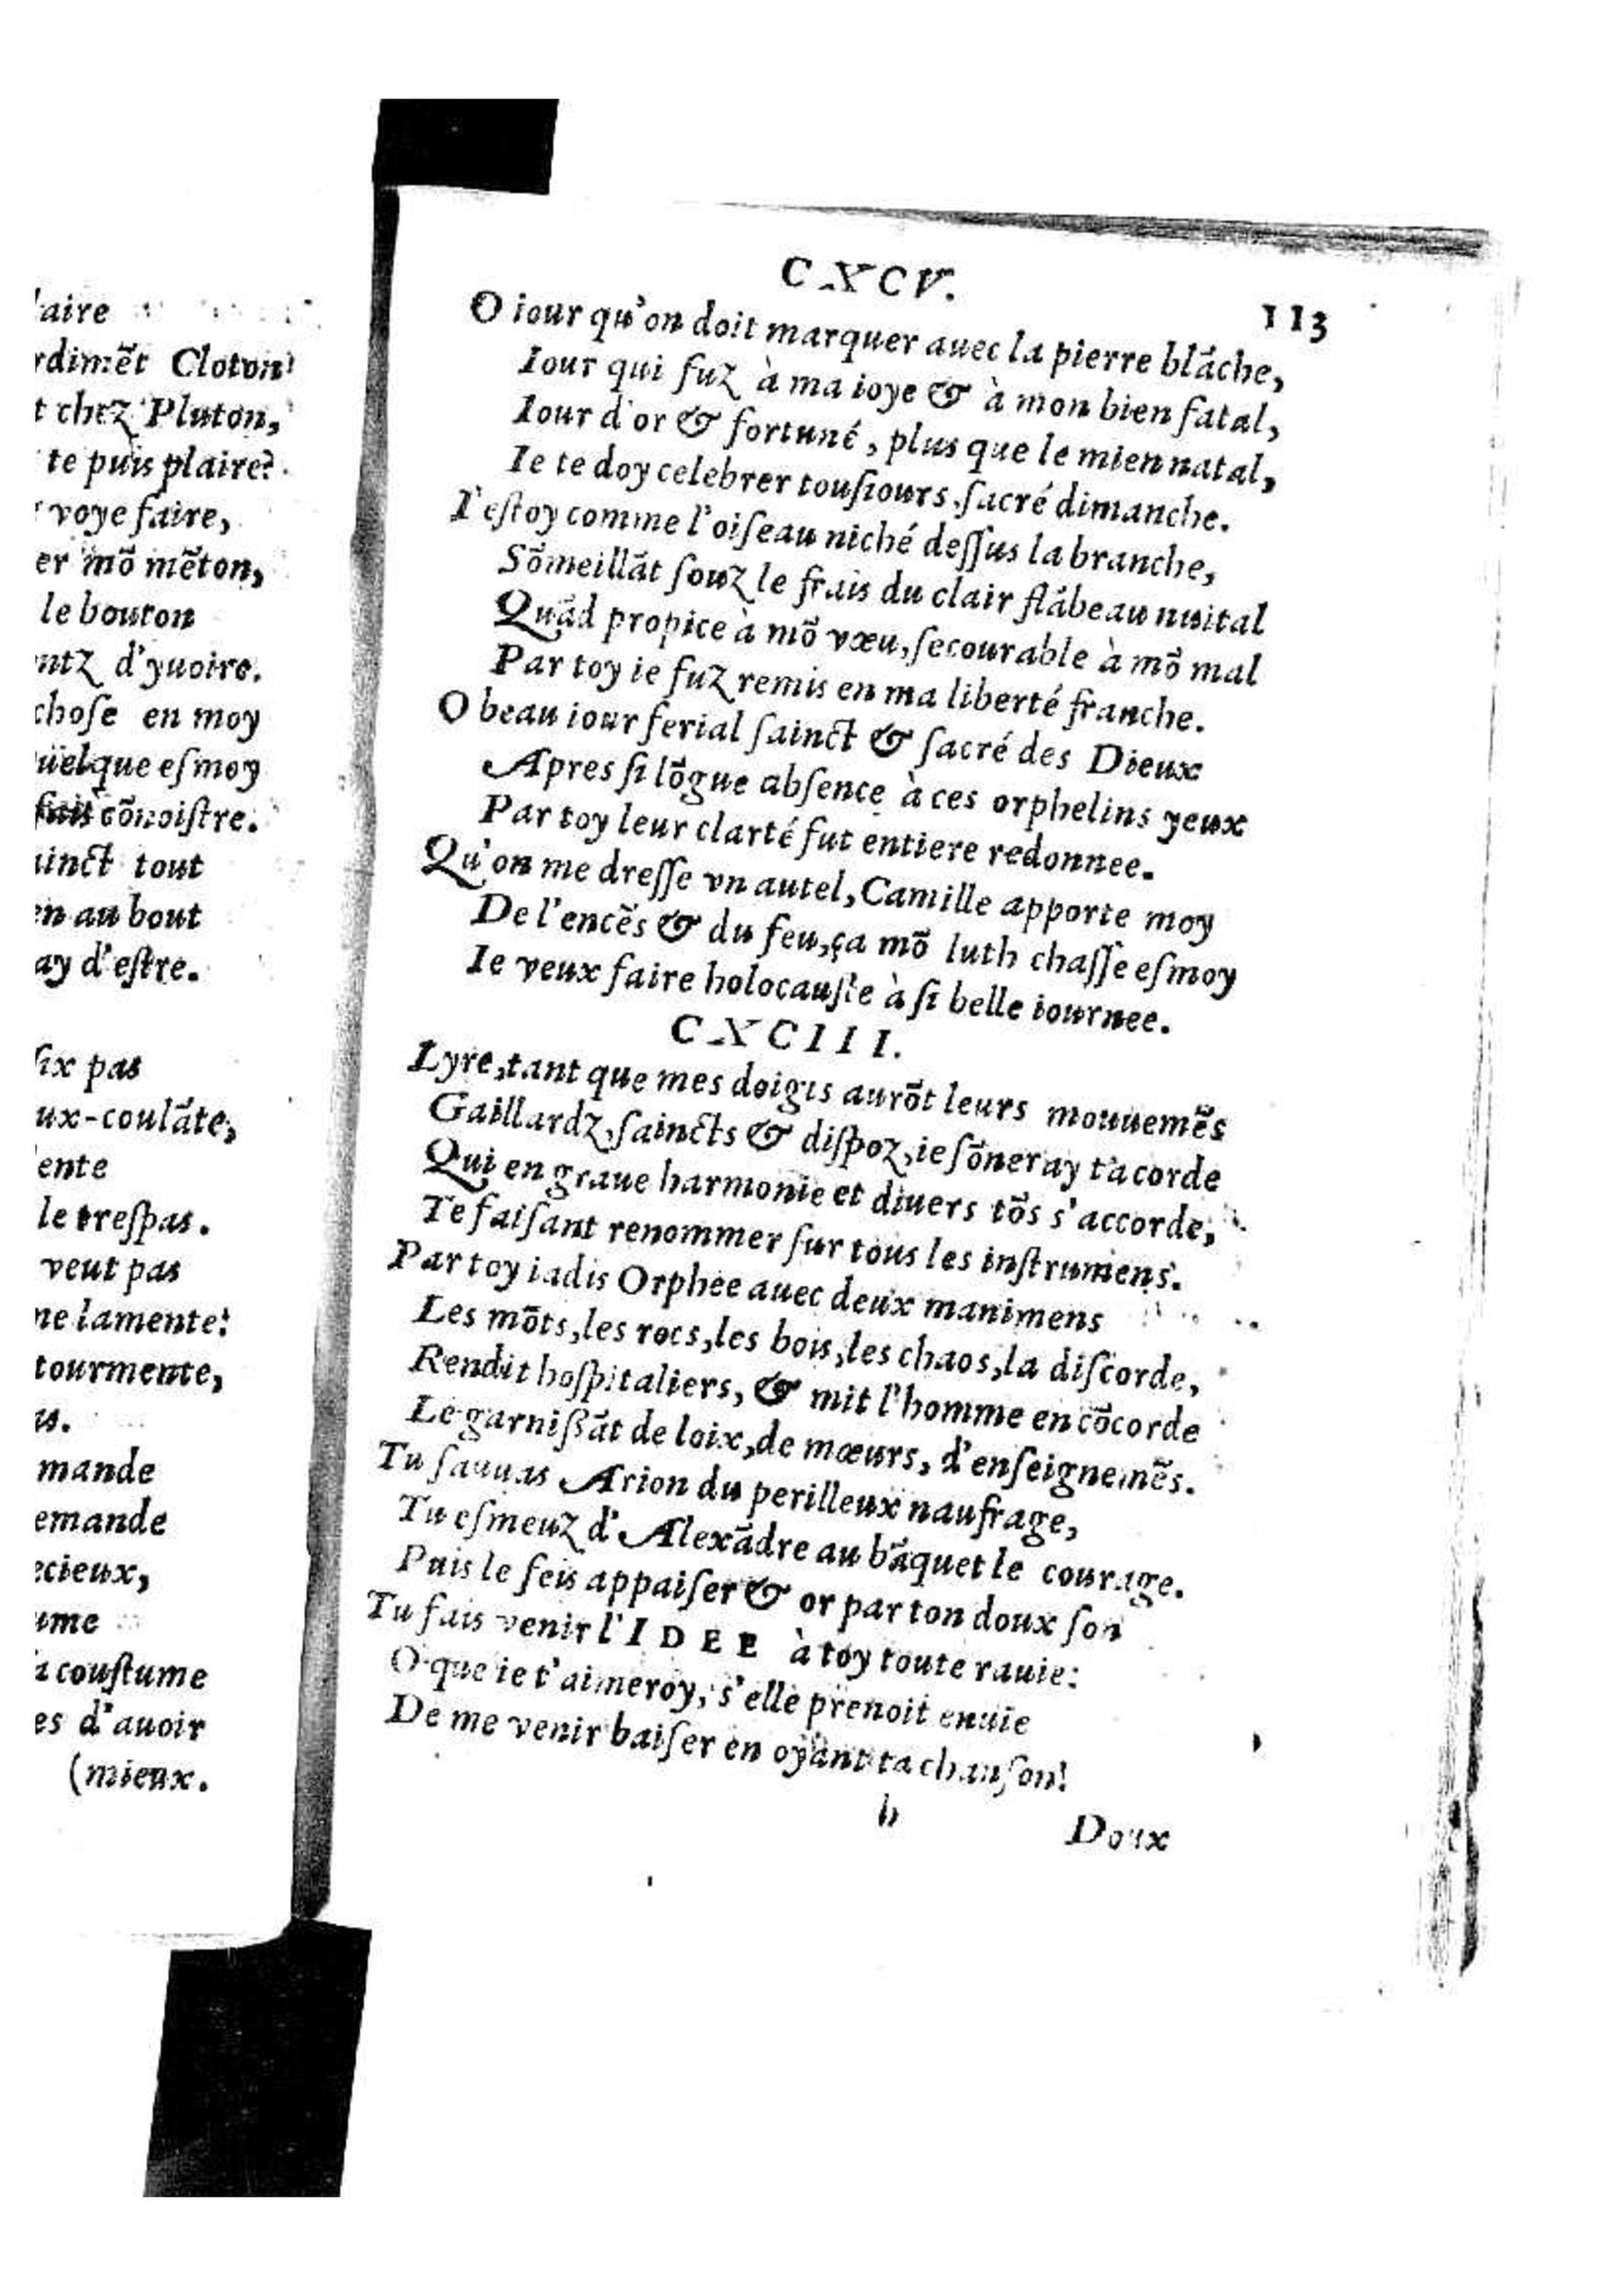 laire
rdimẽt Cloton
t chez Pluton,
te puis plaire?
voye faire,
er mõ mẽton,
le bouton
ntz d'yuoire.
chose en moy
quelque esmoy
fais cõnoiſtre.
ainct tout
en au bout
ay d'eſtre.
ſix pas
ux-coulãte,
lente
le treſpas.
veut pas
ne lamente:
tourmente,
as.
mande
emande
ecieux,
ume
a couſtume
es d'auoir
(mieux.
113
CXCV.
O iour qu'on doit marquer auec la pierre blãche,
Iour qui fuz à ma ioye & à mon bien fatal,
Iour d'or & fortuné, plus que le mien natal,
Ie te doy celebrer touſiours, ſacré dimanche.
I'eſtoy comme l'oiſeau niché deſſus la branche,
Sõmeillãt ſouz le frais du clair flãbeau nuital
Quãd propice à mõ vœu, ſecourable à mõ mal
Par toy ie fuz remis en ma liberté franche.
O beau iour ferial ſainct & ſacré des Dieux
Apres ſi lõgue abſence à ces orphelins yeux
Par toy leur clarté fut entiere redonnee.
Qu'on me dreſſe vn autel, Camille apporte moy
De l'encẽs & du feu, ça mõ luth chaſſe eſmoy
Ie veux faire holocauſte à ſi belle iournee.
CXCIII.
Lyre, tant que mes doigts aurõt leurs mouuemẽs
Gaillardz, ſaincts & diſpoz, ie ſõneray ta corde
Qui en graue harmonie et diuers tõs s'accorde,
Te faiſant renommer ſur tous les inſtrumens.
Par toy iadis Orphee auec deux manimens
Les mõts, les rocs, les bois, les chaos, la diſcorde,
Rendit hoſpitaliers, & mit l'homme en cõcorde
Le garnißãt de loix, de mœurs, d'enſeignemẽs.
Tu ſauuas Arion du perilleux naufrage,
Tu eſmeuz d'Alexãdre au bãquet le courage.
Puis le feis appaiſer & or par ton doux ſon
Tu fais venir l'IDEE à toy toute rauie:
O que ie t'aimeroy, s'elle prenoit enuie
De me venir baiſer en oyant ta chanſon!
h
Doux